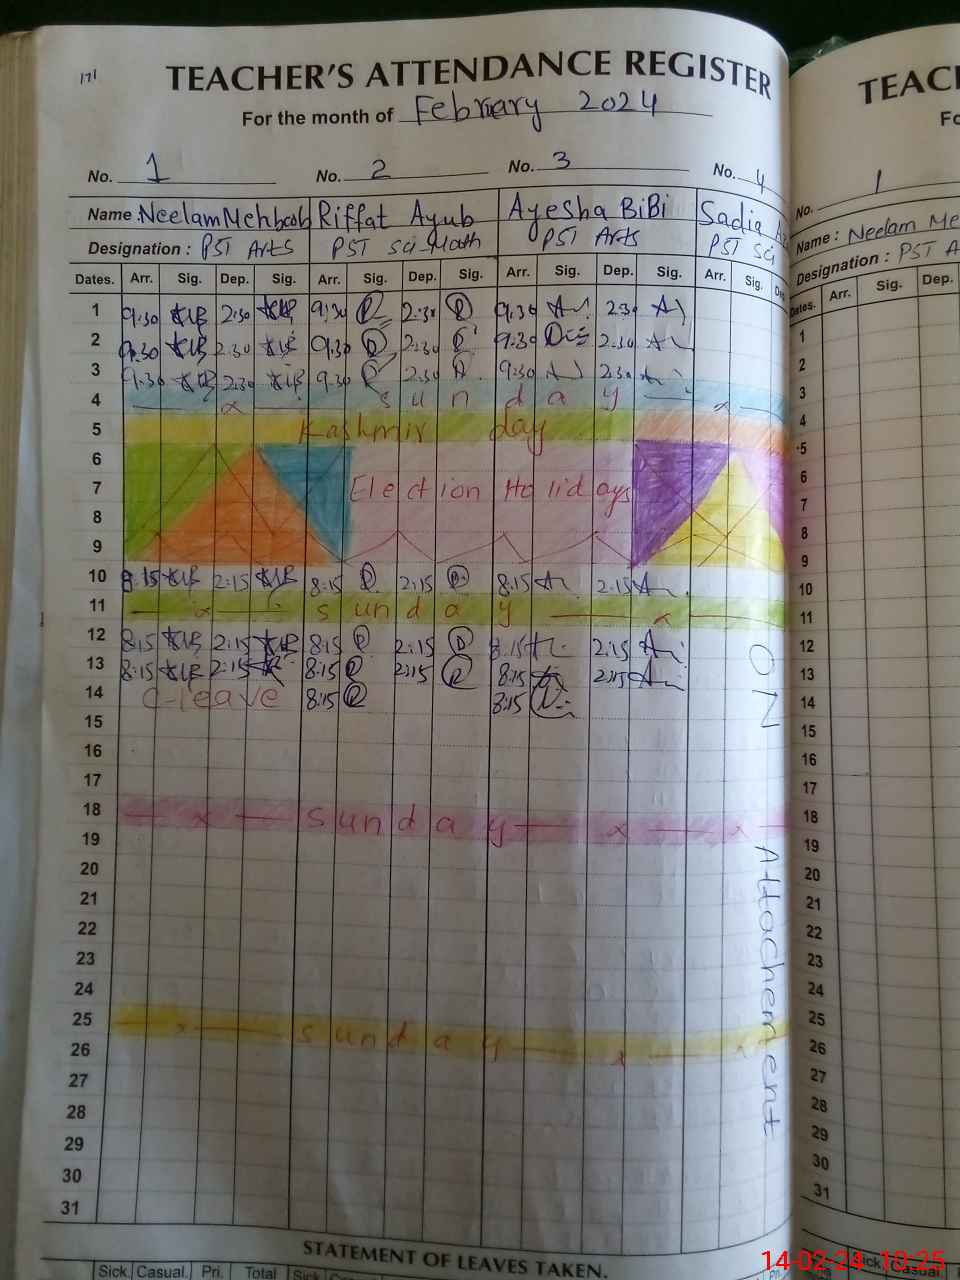 171
TEACHER'S ATTENDANCE REGISTER
For the month of February 2024
No. 1 No. 2 No. 3 No. 4
Name : Neelam Mehboob Riffat Ayub Ayesha BiBi Sadia
Designation : PST Arts PST Sci-Math PST Arts PST Sci
Dates. Arr. Sig. Dep. Sig. Arr. Sig. Dep. Sig. Arr. Sig. Dep. Sig. Arr. Sig.
1 9:30 2:30 9:30 2:30 9:30 2:30
2 9:30 2:30 9:30 2:30 9:30 2:30
3 9:30 2:30 9:30 2:30 9:30 2:30
4 — x — Sunday — x —
5 Kashmir day
6
7 Election Holidays
8
9
10 8:15 2:15 8:15 2:15 8:15 2:15
11 — x — Sunday — x —
12 8:15 2:15 8:15 2:15 8:15 2:15
13 8:15 2:15 8:15 2:15 8:15 2:15
14 C-leave 8:15 8:15
15
16
17
18 — x — Sunday — x — x —
19
20
21
22
23
24
25 — x — Sunday — x — x
26
27
28
29
30
31
ON Attachement
STATEMENT OF LEAVES TAKEN.
Sick. Casual. Pri. Total Sick
TEAC
Fo
No. 1
Name : Neelam Me
Designation : PST A
Dates. Arr. Sig. Dep.
1
2
3
4
5
6
7
8
9
10
11
12
13
14
15
16
17
18
19
20
21
22
23
24
25
26
27
28
29
30
31
Sick Casual
14-02-24 10:25